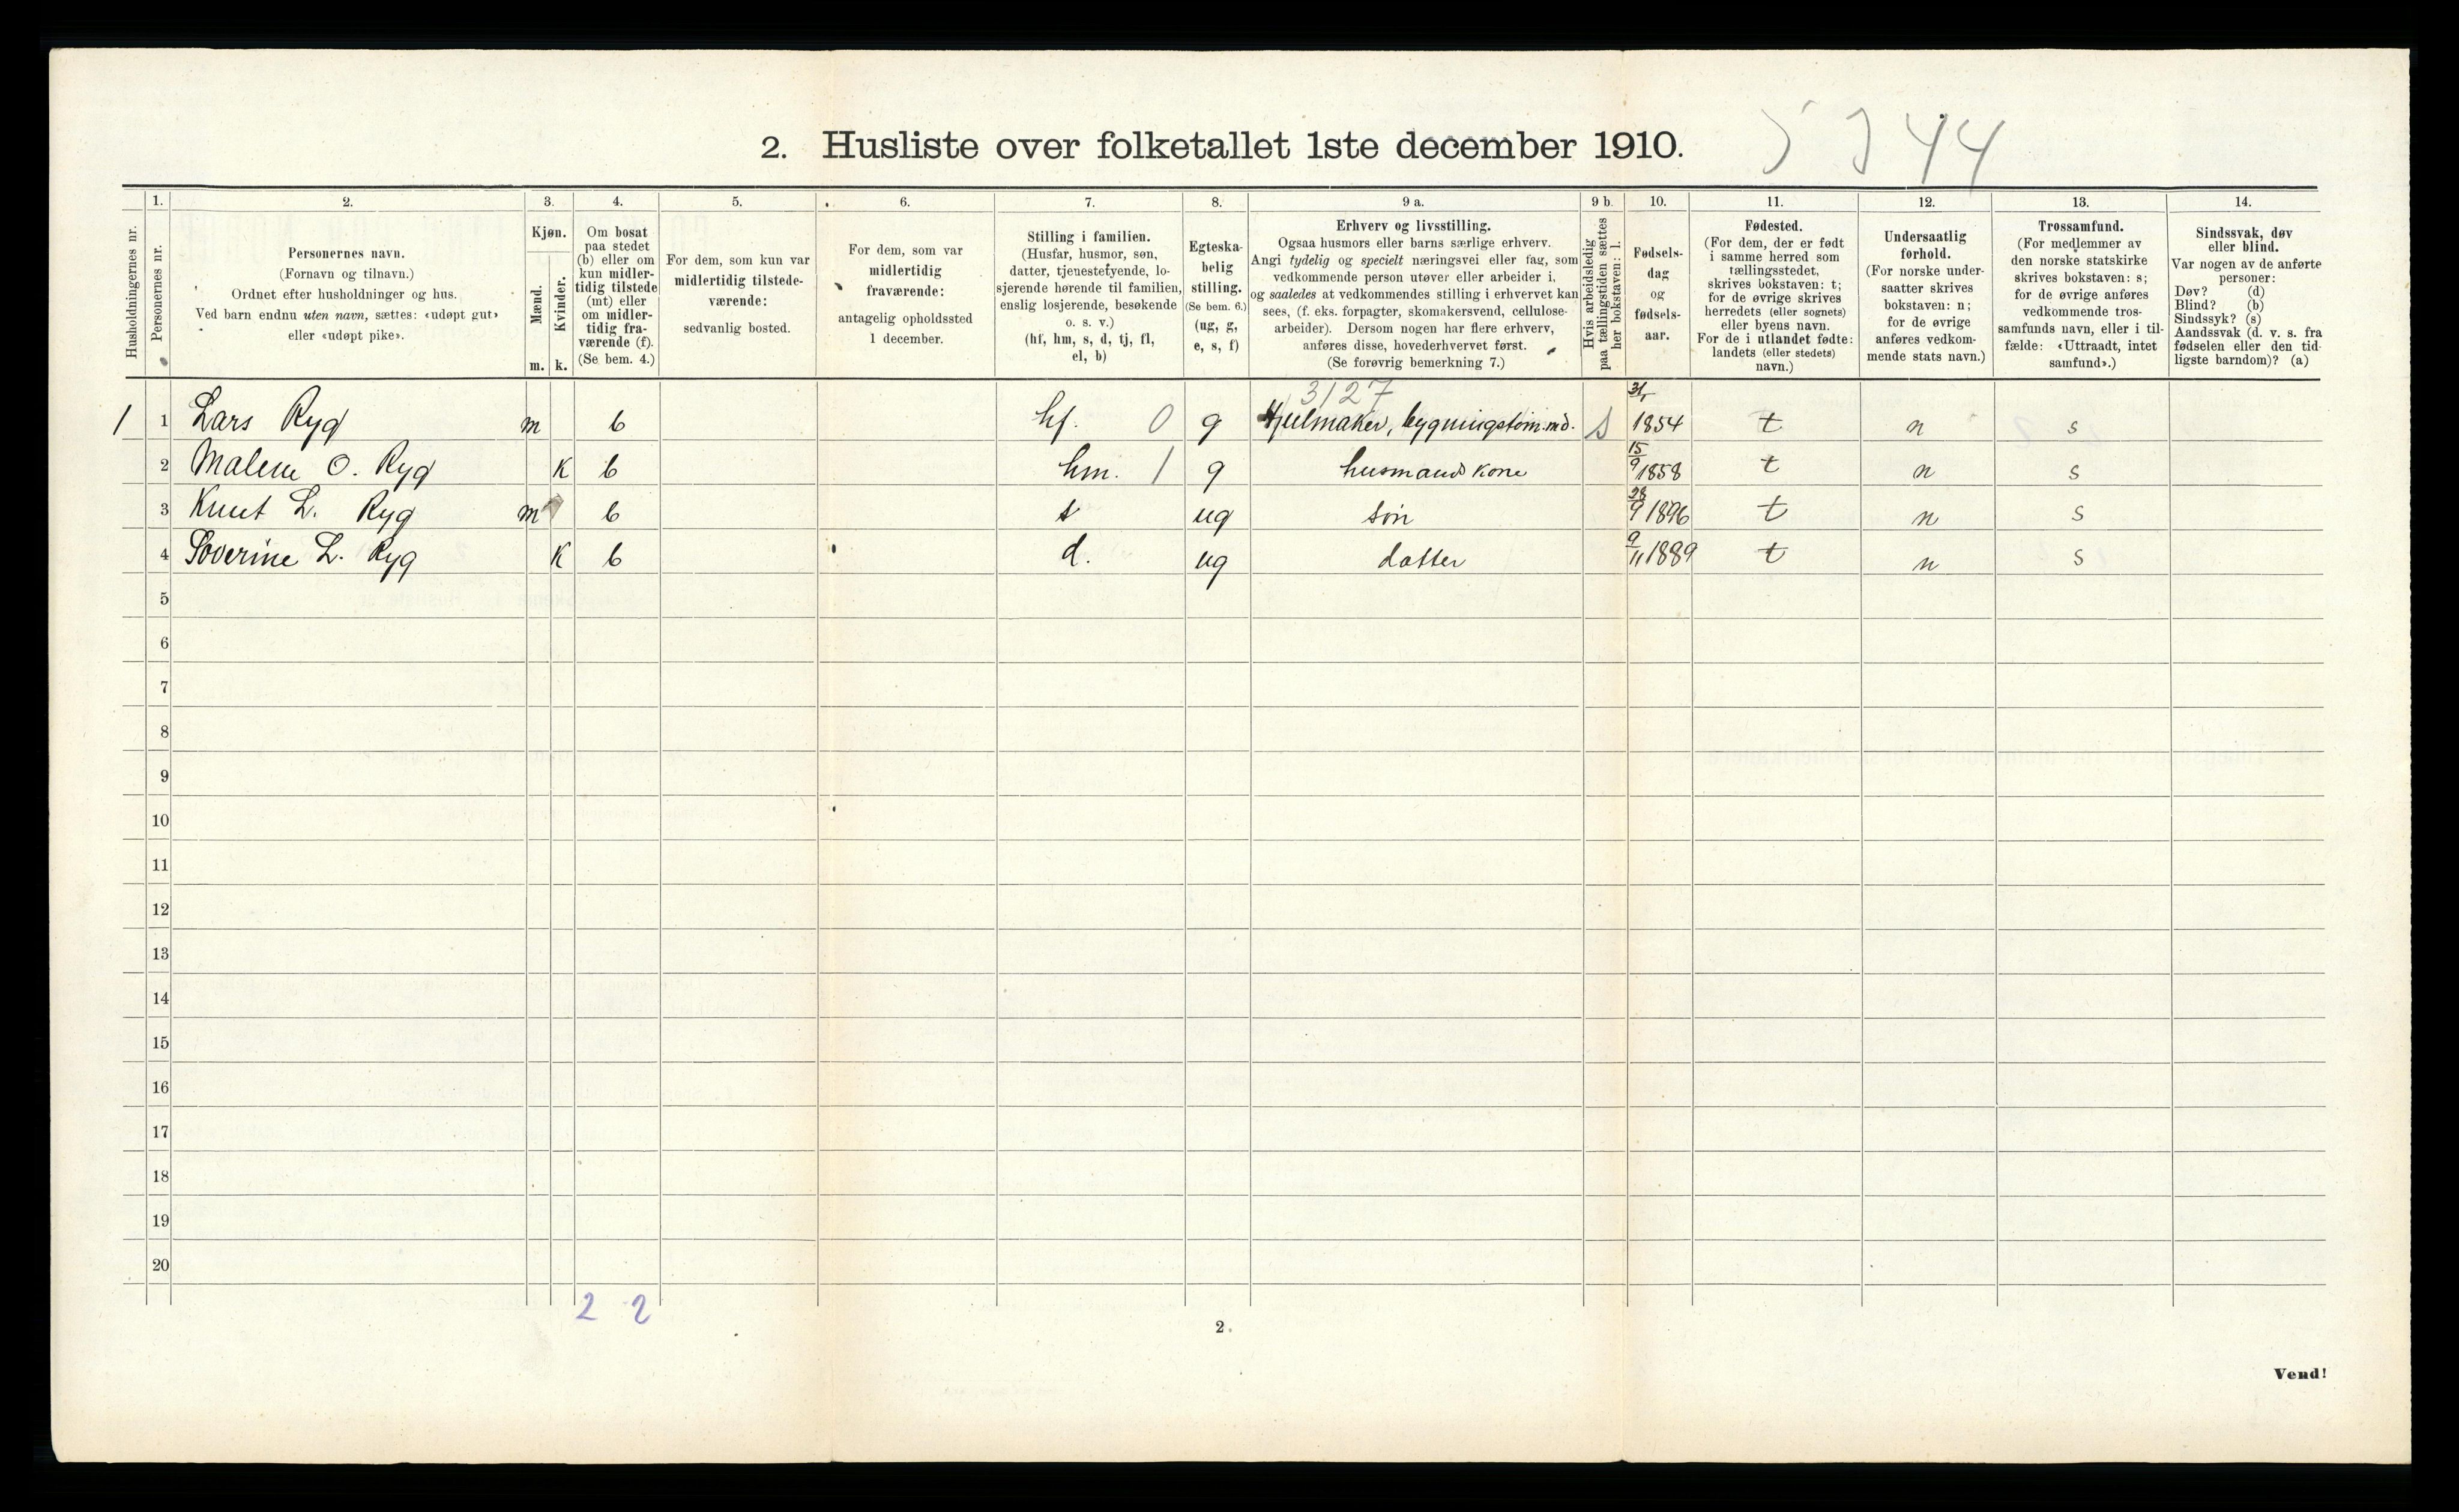 2. Husliste over folketallet 1ste december 1910.
44
1. 2. 3. 4. 5. 6. 7. 8. 9 a. 9 b. 10. 11. 12. 13. 14.
Husholdningernes nr.
Personernes nr.
Personernes navn.
(Fornavn og tilnavn.)
Ordnet efter husholdninger og hus.
Ved barn endnu uten navn, sættes: «udøpt gut»
eller «udøpt pike».
Kjøn.
Mænd.
Kvinder.
m. k.
Om bosat
paa stedet
(b) eller om
kun midler-
tidig tilstede
(mt) eller
om midler-
tidig fra-
værende (f).
(Se bem. 4.)
For dem, som kun var
midlertidig tilstede-
værende:
sedvanlig bosted.
For dem, som var
midlertidig
fraværende:
antagelig opholdssted
1 december.
Stilling i familien.
(Husfar, husmor, søn,
datter, tjenestetyende, lo-
sjerende hørende til familien,
enslig losjerende, besøkende
o. s. v.)
(hf, hm, s, d, tj, fl,
el, b)
Egteska-
belig
stilling.
(Se bem. 6.)
(ug, g,
e, s, f)
Erhverv og livsstilling.
Ogsaa husmors eller barns særlige erhverv.
Angi tydelig og specielt næringsvei eller fag, som
vedkommende person utøver eller arbeider i,
og saaledes at vedkommendes stilling i erhvervet kan
sees, (f. eks. forpagter, skomakersvend, cellulose-
arbeider). Dersom nogen har flere erhverv,
anføres disse, hovederhvervet først.
(Se forøvrig bemerkning 7.)
Hvis arbeidsledig
paa tællingstiden sættes
her bokstaven: l.
Fødsels-
dag
og
fødsels-
aar.
Fødested.
(For dem, der er født
i samme herred som
tællingsstedet,
skrives bokstaven: t;
for de øvrige skrives
herredets (eller sognets)
eller byens navn.
For de i utlandet fødte:
landets (eller stedets)
navn.)
Undersaatlig
forhold.
(For norske under-
saatter skrives
bokstaven: n;
for de øvrige
anføres vedkom-
mende stats navn.)
Trossamfund.
(For medlemmer av
den norske statskirke
skrives bokstaven: s;
for de øvrige anføres
vedkommende tros-
samfunds navn, eller i til-
fælde: «Uttraadt, intet
samfund».)
Sindssvak, døv
eller blind.
Var nogen av de anførte
personer:
Døv? (d)
Blind? (b)
Sindssyk? (s)
Aandssvak (d. v. s. fra
fødselen eller den tid-
ligste barndom)? (a)
3127
1 1 Lars Ryg m b hf. 0 g Hjulmaker, bygningstøm.md. s 1854 t n s
2 Malene O. Ryg k b hm. 1 g husmands kone 15/9 1858 t n s
3 Knut L. Ryg m b s ug søn 28/9 1896 t n s
4 Soverine L. Ryg k b d. ug datter 9/11 1889 t n s
5
6
7
8
9
10
11
12
13
14
15
16
17
18
19
20
2 2
2
Vend!